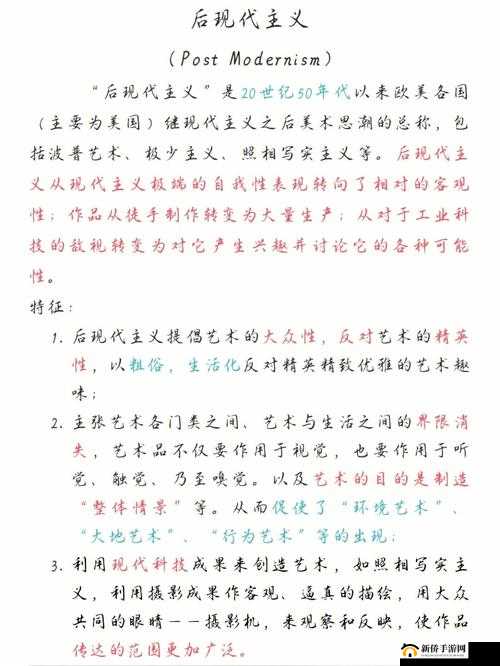 后现代主义
（Post Modernism）
“后现代主义”是20世纪50年代以来欧美各国
（主要为美国）继现代主义之后美术思潮的总称，包
括波普艺术、极少主义、照相写实主义等。后现代主
义从现代主义极端的自我性表现转向了相对的客观
性；作品从徒手制作转变为大量生产；从对于工业科
技的敌视转变为对它产生兴趣并讨论它的各种可能
性。
特征：
1. 后现代主义提倡艺术的大众性，反对艺术的精英
性，以粗俗，生活化反对精英精致优雅的艺术趣
味；
2. 主张艺术各门类之间、艺术与生活之间的界限消
失，艺术品不仅要作用于视觉，也要作用于听
觉、触觉、乃至嗅觉。以及艺术的目的是制造
“整体情景”等。从而促使了“环境艺术”、
“大地艺术”、“行为艺术”等的出现；
3. 利用现代科技成果来创造艺术，如照相写实主
义，利用摄影成果作客观、逼真的描绘，用大众
共同的眼睛——摄影机，来观察和反映，使作品
传达的范围更加广泛。
新侨手游网